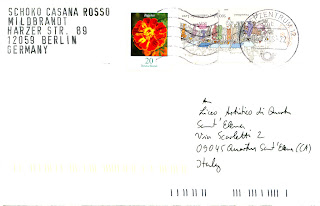 SCHOKO CASANA ROSSO
MILDBRANDT
HARZER STR. 89
12059 BERLIN
GERMANY
20
Liceo Artistico di Quartu
Sant'Elena
Via Scarletti 2
09045 Quartu Sant'Elena (CA)
Italy